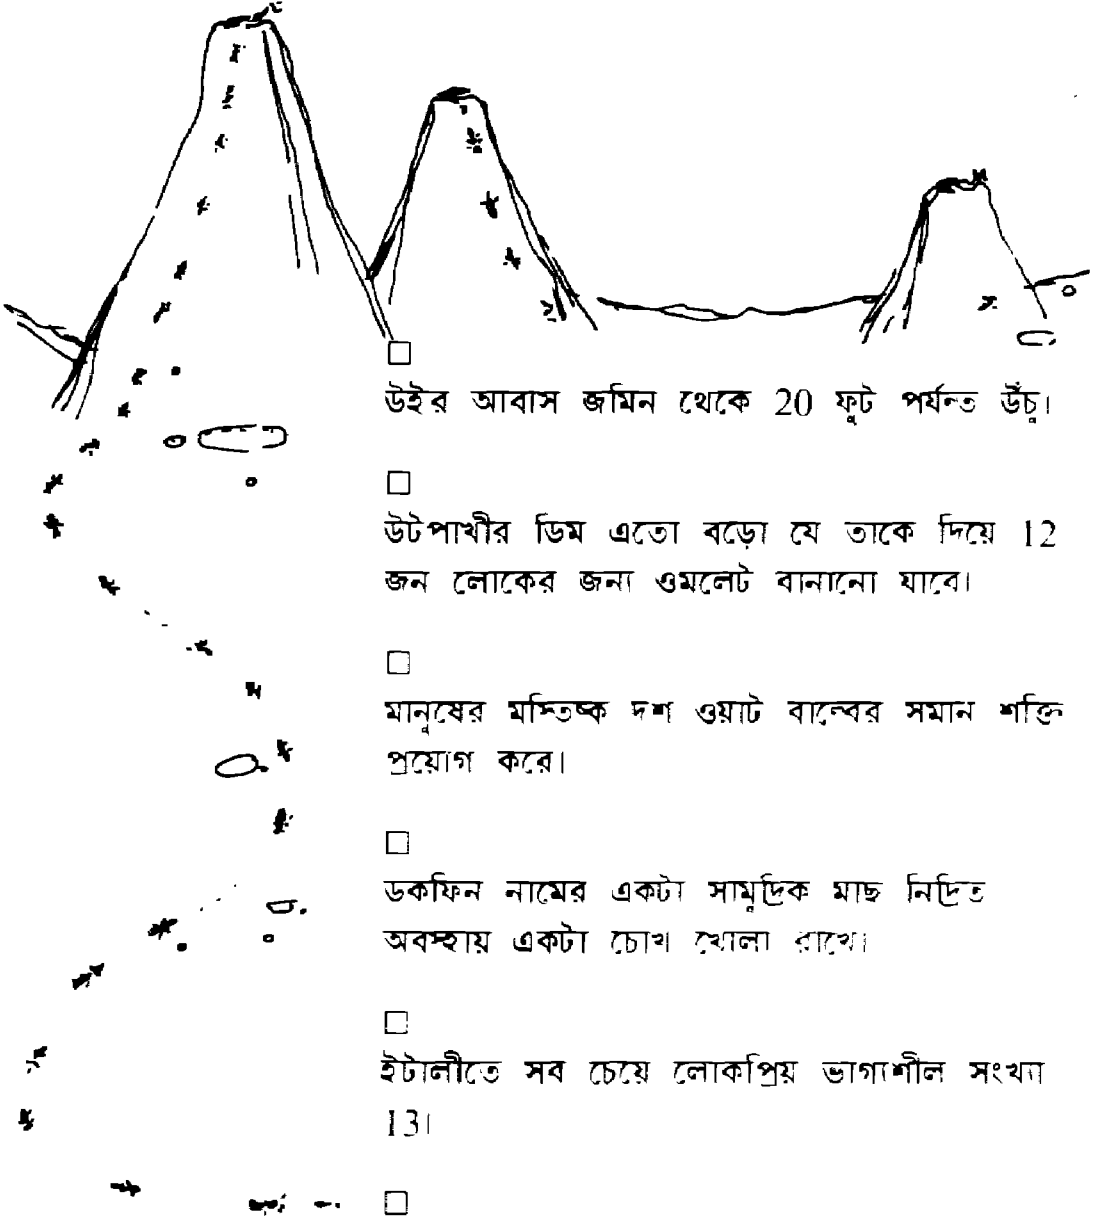 উইর আবাস জমিন থেকে 20 ফুট পর্যন্ত উঁচু।
উটপাখীর ডিম এতো বড়ো যে তাকে দিয়ে 12
জন লোকের জন্য ওমলেট বানানো যাবে।
মানুষের মস্তিষ্ক দশ ওয়াট বাল্বের সমান শক্তি
প্রয়োগ করে।
ডকফিন নামের একটা সামুদ্রিক মাছ নিদ্রিত
অবস্হায় একটা চোখ খোলা রাখে।
ইটালীতে সব চেয়ে লোকপ্রিয় ভাগ্যশীল সংখ্যা
13।